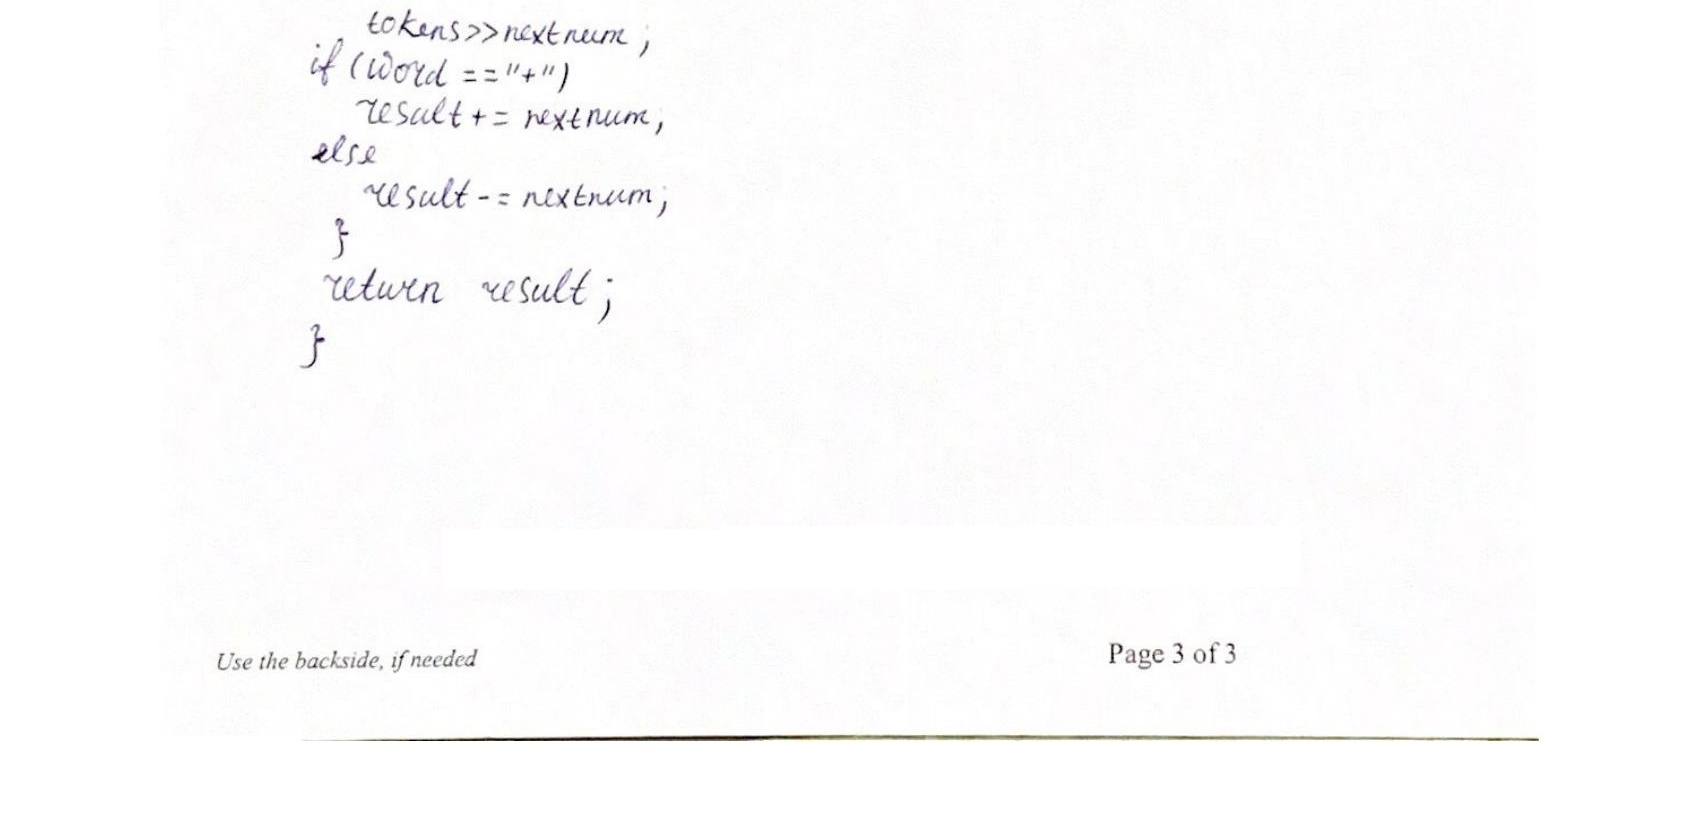 tokens>>nextnum;
if (Word == "+")
result += nextnum;
else
result -= nextnum;
}
return result;
}
Use the backside, if needed
Page 3 of 3